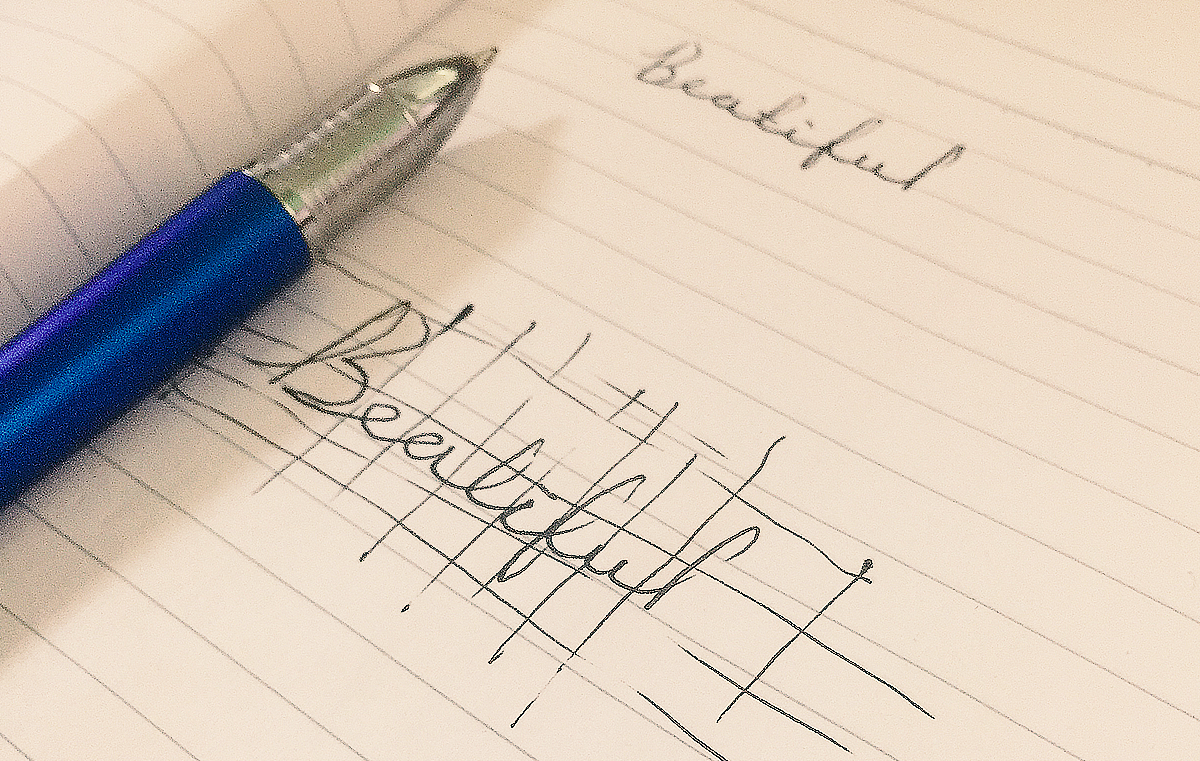 Beatiful
Beatiful